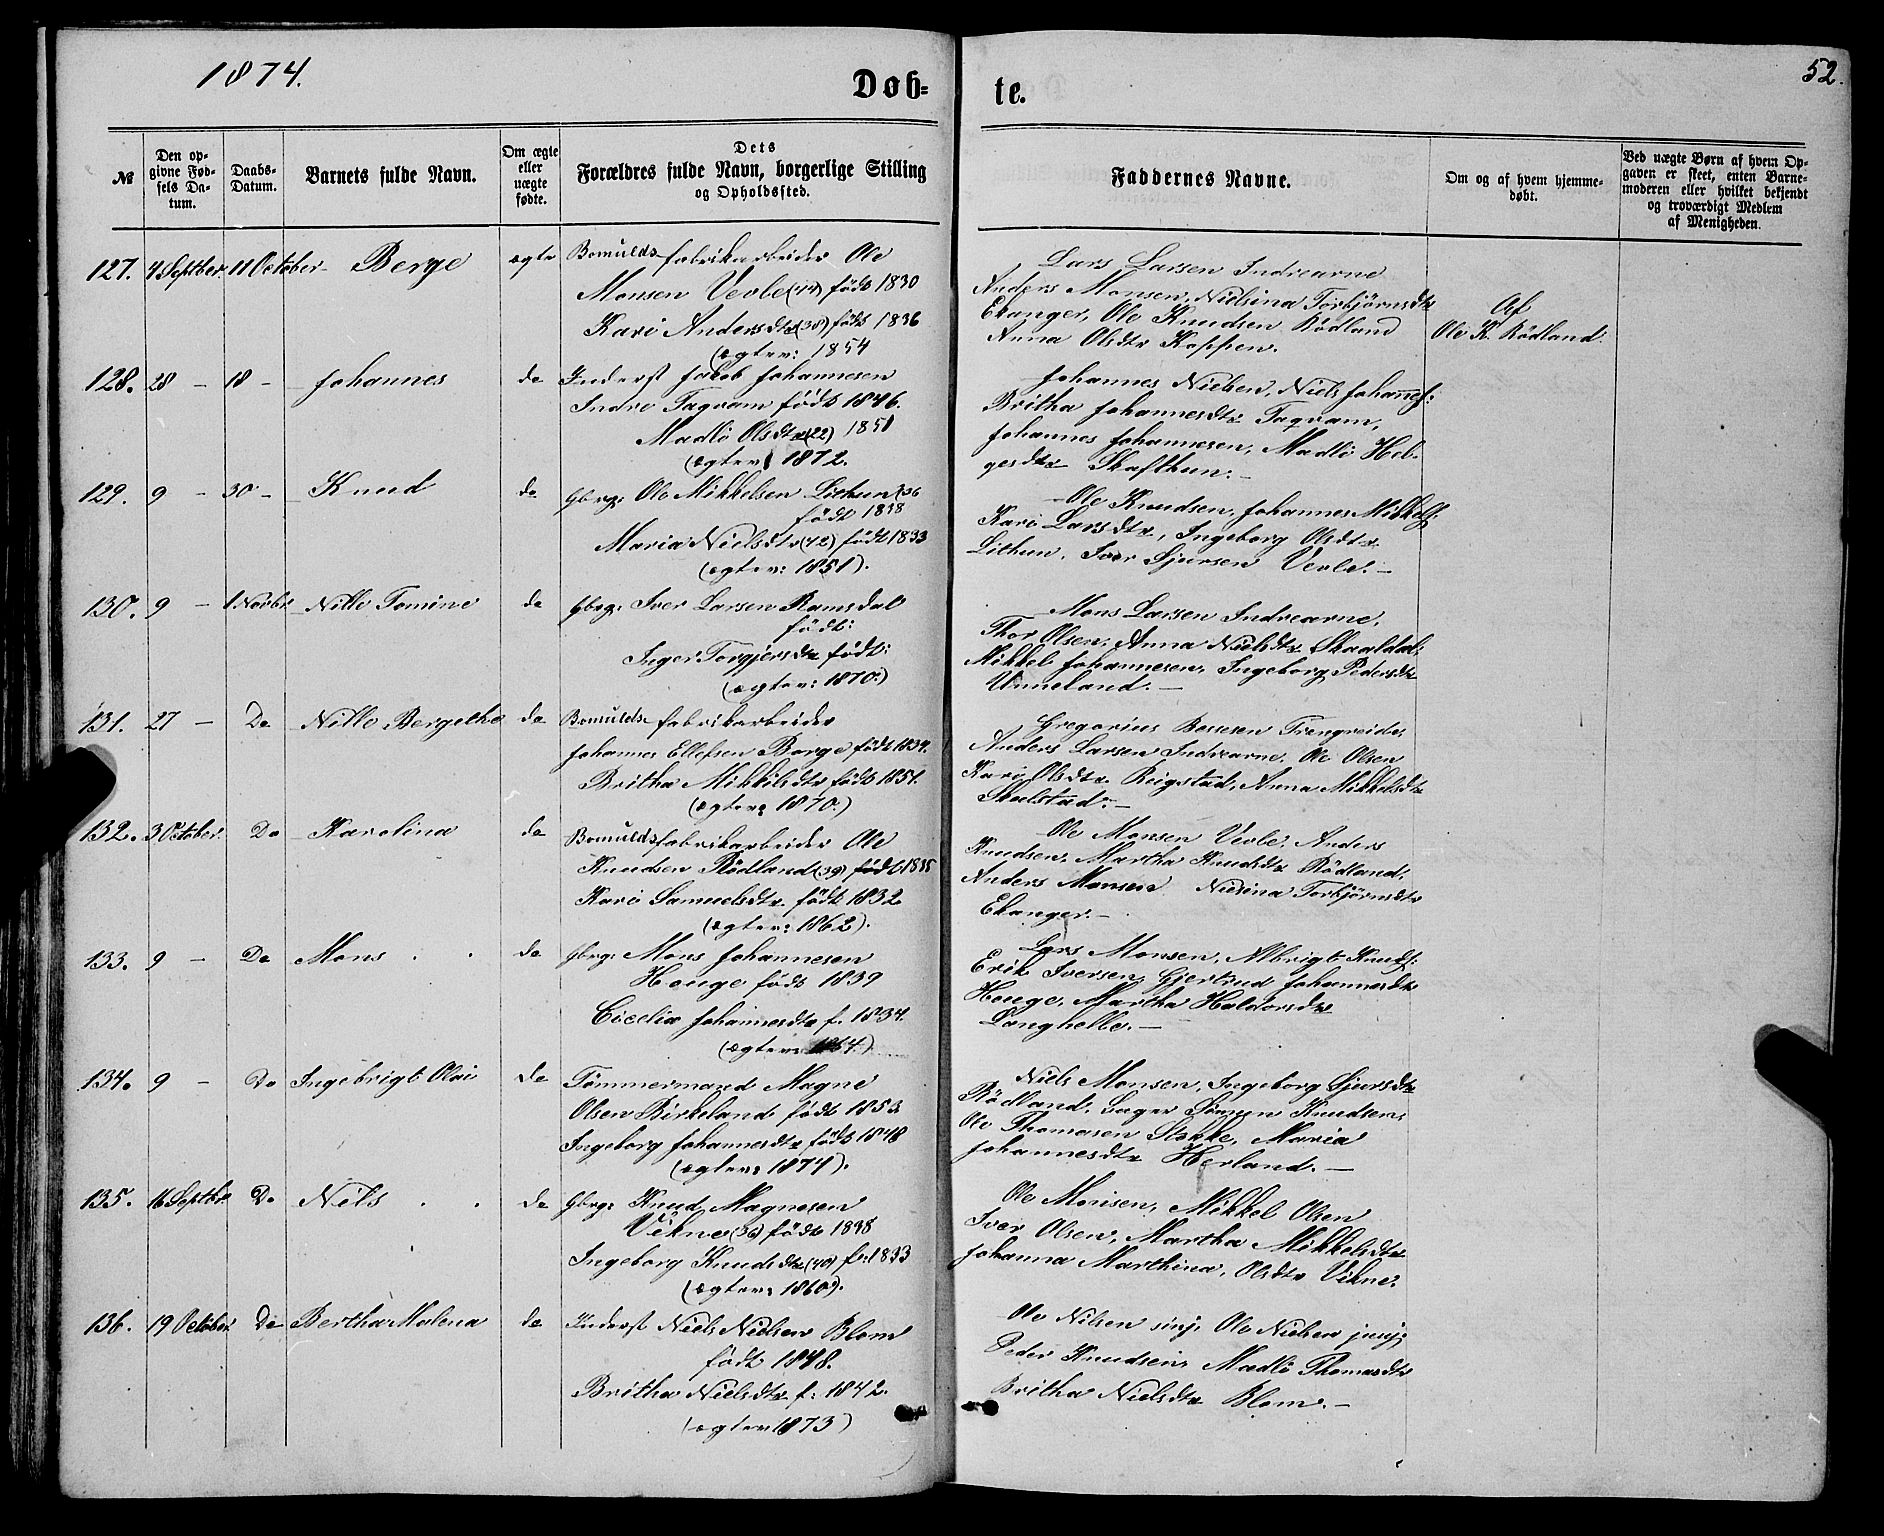 1874.
Døb-
te.
52.
№
Den op-
givne Fød-
sels Da-
tum.
Daabs-
Datum.
Barnets fulde Navn.
Om ægte
eller
uægte
fødte.
Dets
Forældres fulde Navn, borgerlige Stilling
og Opholdssted.
Faddernes Navne.
Om og af hvem hjemme-
døbt.
Ved uægte Børn af hvem Op-
gaven er skeet, enten Barne-
moderen eller hvilket bekjendt
og troværdigt Medlem
af Menigheden.
127. 4 Septber. 11 October Berge ægte Bomuldsfabrikarbeider Ole
Monsen Vevle (44) født 1830
Kari Andersdtr (38) født 1836
(ægtev: 1854
Lars Larsen Indrearne
Anders Monsen, Nielsina Torbjörnsdtr
Ekanger, Ole Knudsen Rödland
Anna Olsdtr Koppen.
Af
Ole K. Rödland.
128. 28 - 18 - Johannes do Inderst Jacob Johannesen
Indre Tagvam født 1846.
Madli Olsdtr (22) 1851
(ægtev 1872.
Johannes Nielsen, Niels Johannes:
Britha Johannesdtr Tagvam,
Johannes Johannesen, Madli Hel-
gesdtr Skafthun. -
129. 9 - 30 - Knud do Gbrg: Ole Mikkelsen Lithun (36
født 1838
Maria Nielsdtr (42) født 1833
(ægtev: 1851).
Ole Knudsen, Johannes Mikkels:
Kari Larsdtr, Ingeborg Olsdtr
Lithun, Iver Sjursen Vevle. -
130. 9 - 1 Novbr Nille Tomine do Gbrg: Iver Larsen Ramsdal
født:
Inger Torgjersdtr født:
(ægtev: 1870.)
Mons Larsen Indrearne,
Thor Olsen, Anna Nielsdtr Skaaldal,
Mikkel Johannesen, Ingeborg Pedersdtr
Unneland. -
131. 27 - Do Nille Bergethe do Bomuldsfabrikarbeider
Johannes Ellefsen Borge født 1834.
Britha Mikkelsdtr født 1851.
(ægtev: 1870.)
Gregorius Bessesen Trengereide
Anders Larsen Indrearne, Ole Olsen
Kari Olsdtr Reigstad, Anna Mikkelsdtr
Skulstad. -
132. 3 October. Do Karolina do Bomuldsfabrikarbeider Ole
Knudsen Rödland (39) født 1835
Kari Samuelsdtr født 1832
(ægtev: 1862).
Ole Monsen Vevle, Anders
Knudsen, Martha Knudsdtr Rödland,
Anders Monsen Nielsina Torbjörnsdtr
Ekanger. -
133. 9 - Do Mons do Gbrg: Mons Johannesen
Houge født 1839
Cicelia Johannesdtr f. 1834.
(ægtev: 1864)
Lars Monsen, Albrigt Knuds:
Erik Iversen, Gjertrud Johannesdtr
Houge, Martha Haldorsdtr
Langhelle. -
134. 9 - Do Ingebrigt Olai do Tömmermand Magne
Olsen Birkeland født 1853
Ingeborg Johannesdtr født 1848
(ægtev: 1874).
Niels Monsen, Ingeborg Sjursdtr
Rödland, Knudsen,
Ole Thomasen Stokke, Maria
Johannesdtr Herland. -
135. 16 Septbr. Do Nils do Gbrg: Knud Magnesen
Vikne (36) født 1838
Ingeborg Knudsdtr (40) f: 1833
(ægtev: 1860).
Ole Monsen, Mikkel Olsen
Iver Olsen, Martha Mikkelsdtr
Johanna Marthina, Olsdtr Vikne.
136. 19 October Do Bertha Malena do Inderst Niels Nielsen Blom
født 1848.
Britha Nielsdtr f: 1842.
(ægtev 1873)
Ole Nilsen sinj, Ole Nielsen junj,
Peder Knudsen, Madli Thomasdtr
Britha Nielsdtr Blom. -